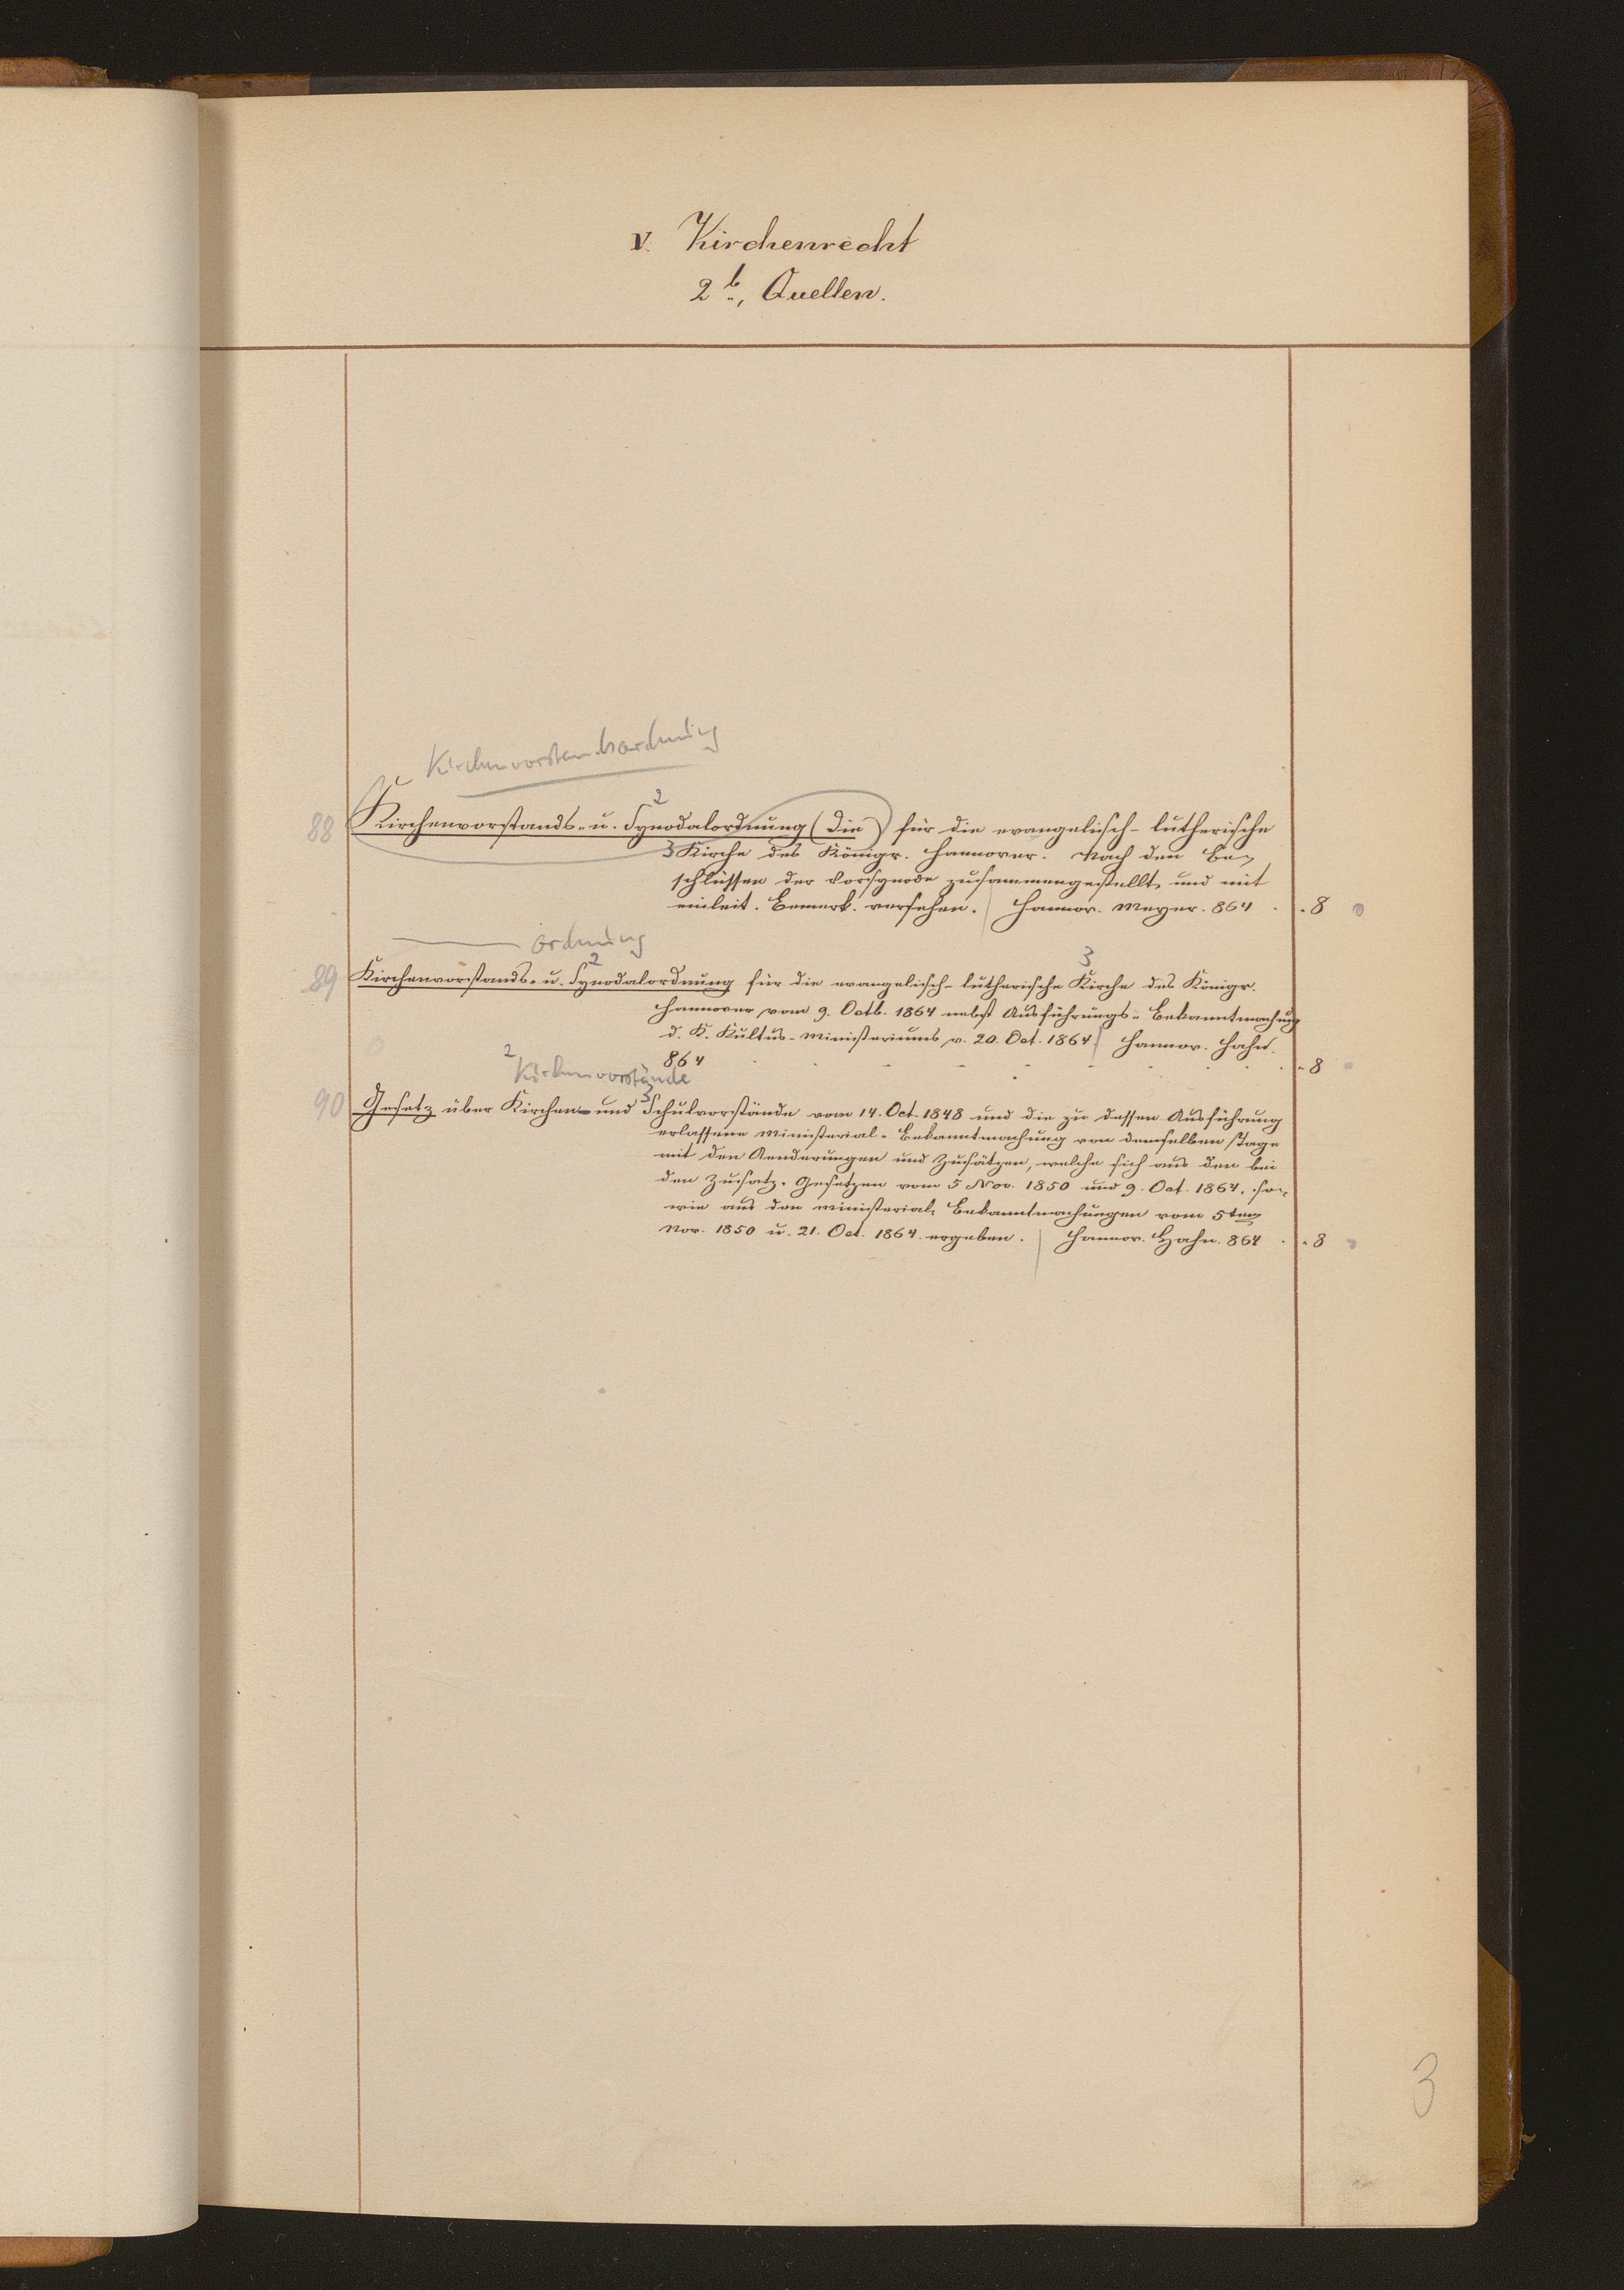 V. Kirchenrecht
2 b, Quellen.
Kirchenvorstandsordnung
2
88 Kirchenvorstands- u. Synodalordnung (die) für die evangelisch-lutherische
3 Kirche des Königr. Hannover. Nach den Be-
schlüssen der Vorsynode zusammengestellt und mit
einleit. Bemerk. versehen. Hannov. Meyer. 864 . . 8
ordnung
2 3
89 Kirchenvorstands- u. Synodalordnung für die evangelisch-lutherische Kirche des Königr.
Hannover vom 9. Octb. 1864 nebst Ausführungs-Bekanntmachung
d. K. Kultus-Ministeriums v. 20. Oct. 1864. Hannov. Hahn.
864 . . 8
2 Kirchenvorstände
3
90 Gesetz über Kirchen- und Schulvorstände vom 14. Oct. 1848 und die zu dessen Ausführung
erlassene Ministerial-Bekanntmachung von demselben Tage
mit den Aenderungen und Zusätzen, welche sich aus den bei
den Zusatz-Gesetzen vom 5 Nov. 1850 und 9. Oct. 1864, so-
wie aus den Ministerial-Bekanntmachungen vom 5ten
Nov. 1850 u. 21. Oct. 1864. ergeben. Hannov. Hahn. 864 . . 8
3